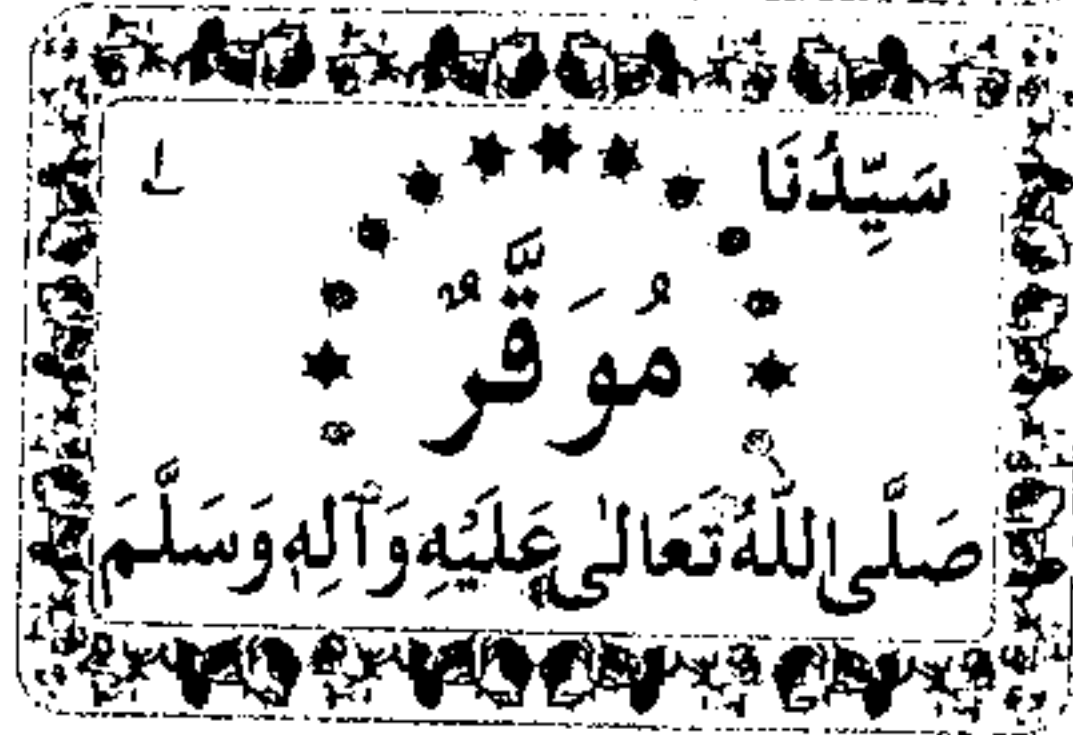 سَيِّدُنَا
مُوَقَّرٌ
صَلَّى اللّٰهُ تَعَالىٰ عَلَيْهِ وَآلِهٖ وَسَلَّمَ